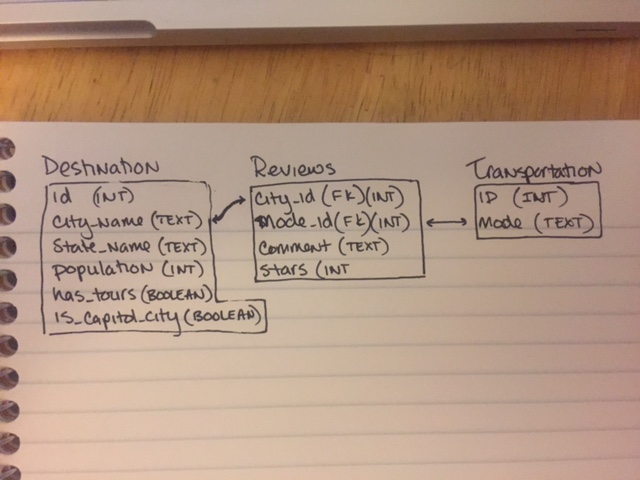 Destination
id (INT)
City_Name (TEXT)
State_Name (TEXT)
population (INT)
has_tours (BOOLEAN)
is_capitol_city (BOOLEAN)
Reviews
City_id (FK)(INT)
Mode_id (FK)(INT)
Comment (TEXT)
Stars (INT
Transportation
ID (INT)
Mode (TEXT)